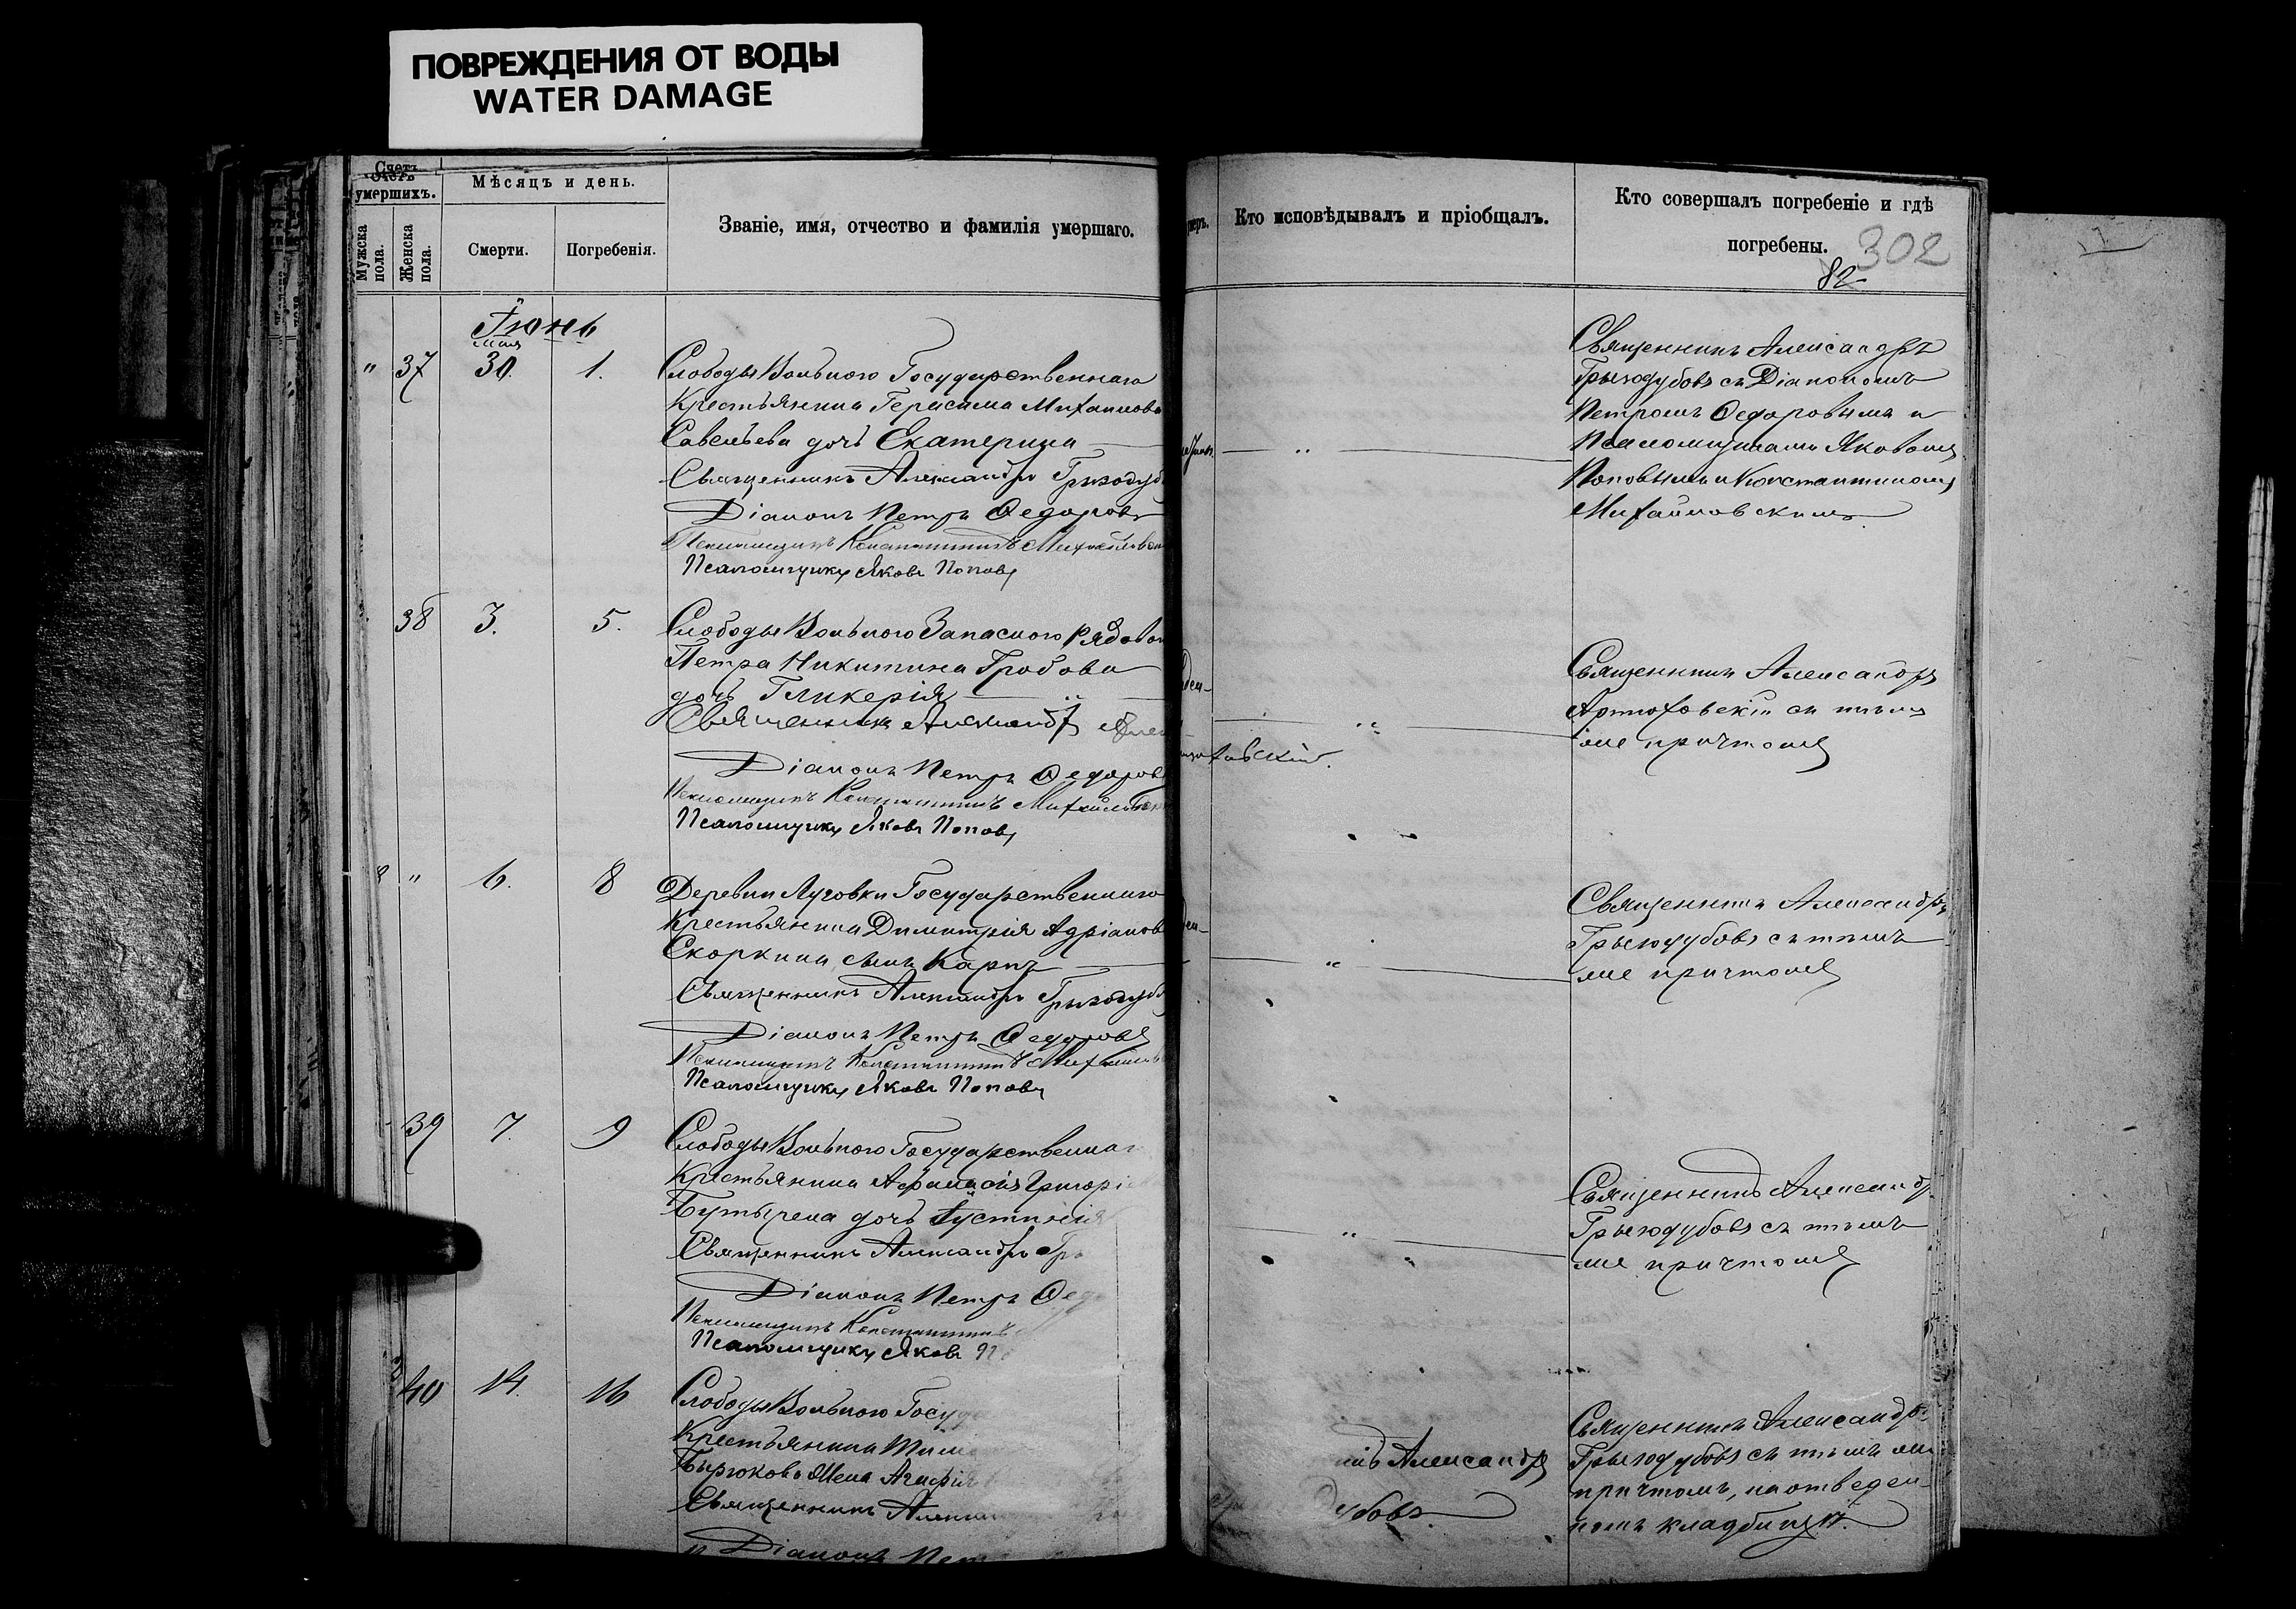 ПОВРЕЖДЕНИЯ ОТ ВОДЫ
WATER DAMAGE
Счетъ
умершихъ.
Мужска пола.
Женска пола.
Мѣсяцъ и день.
Смерти.
Погребенія.
Званіе, имя, отчество и фамилія умершаго.
Кто исповѣдывалъ и пріобщалъ.
Кто совершалъ погребеніе и гдѣ
погребены.
302
82
Іюнь
мая
" 37 30. 1.
Слободы Вольного Государственнаго
Крестьянина Герасима Михаилова
Савельева дочь Екатерина
Священникъ Александръ Грызодуб
Діаконъ Петръ Ѳедоровъ
Псаломщикъ Константинъ Михайловск
Псаломщикъ Яковъ Поповъ
Священникъ Александръ
Грызодубовъ съ Діакономъ
Петромъ Ѳедоровымъ и
Псаломщиками Яковомъ
Поповымъ и Константиномъ
Михайловскимъ
38 3. 5.
Слободы Вольного Запасного Рядовог
Петра Никитина Гробова
дочь Гликерія
Священникъ Александръ
Діаконъ Петръ Ѳедоровъ
Псаломщикъ Константинъ Михайловск
Псаломщикъ Яковъ Поповъ
Священникъ Александръ
Артюховскій съ тѣмъ
же причтомъ
8 " 6. 8
Деревни Луговки Государственнаго
Крестьянина Димитрія Адріанов
Скоркина сынъ Карпъ
Священникъ Александръ Грызодубо
Діаконъ Петръ Ѳедоровъ
Псаломщикъ Константинъ Михайловс
Псаломщикъ Яковъ Поповъ
Священникъ Александръ
Грызодубовъ съ тѣмъ
же причтомъ
39 7. 9
Слободы Вольного Государственнаг
Крестьянина Афанасія Григоріе
Бутырева дочь Іустинія
Священникъ Александръ Гр
Діаконъ Петръ Ѳед
Псаломщикъ Константинъ
Псаломщикъ Яковъ По
Священникъ Александр
Грызодубовъ съ тѣмъ
же причтомъ
40 14. 16
Слободы Вольного Госуда
Крестьянина Тим
Бирюкова Жена Агафія
Священникъ Алекса
Діаконъ Пет
икъ Александръ
дубовъ.
Священникъ Александръ
Грызодубовъ съ тѣмъ же
причтомъ, на отведен-
номъ кладбищѣ.